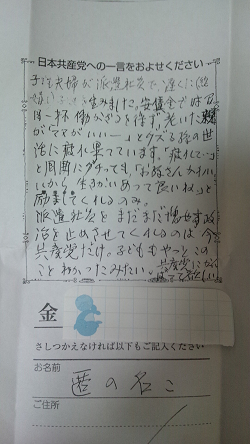 日本共産党への一言をおよせください
子ども夫婦が派遣社員で、遅くに結
生みました。安賃金では
一杯働かざるを得ず老いた親
が「ママがいい―」とグズる孫の世
話に疲れ果てています。「疲れて…」
と周囲にグチっても、「お孫さんカワイ
いから生きがいあって良いね」と
励ましてくれるのみ。
派遣社員をまだまだ増やす政
治を止めさせてくれるのは今
共産党だけ。子どももやっとこの
ことわかったみたい。共産党に
金
さしつかえなければ以下もご記入ください
お名前
匿の名こ
ご住所